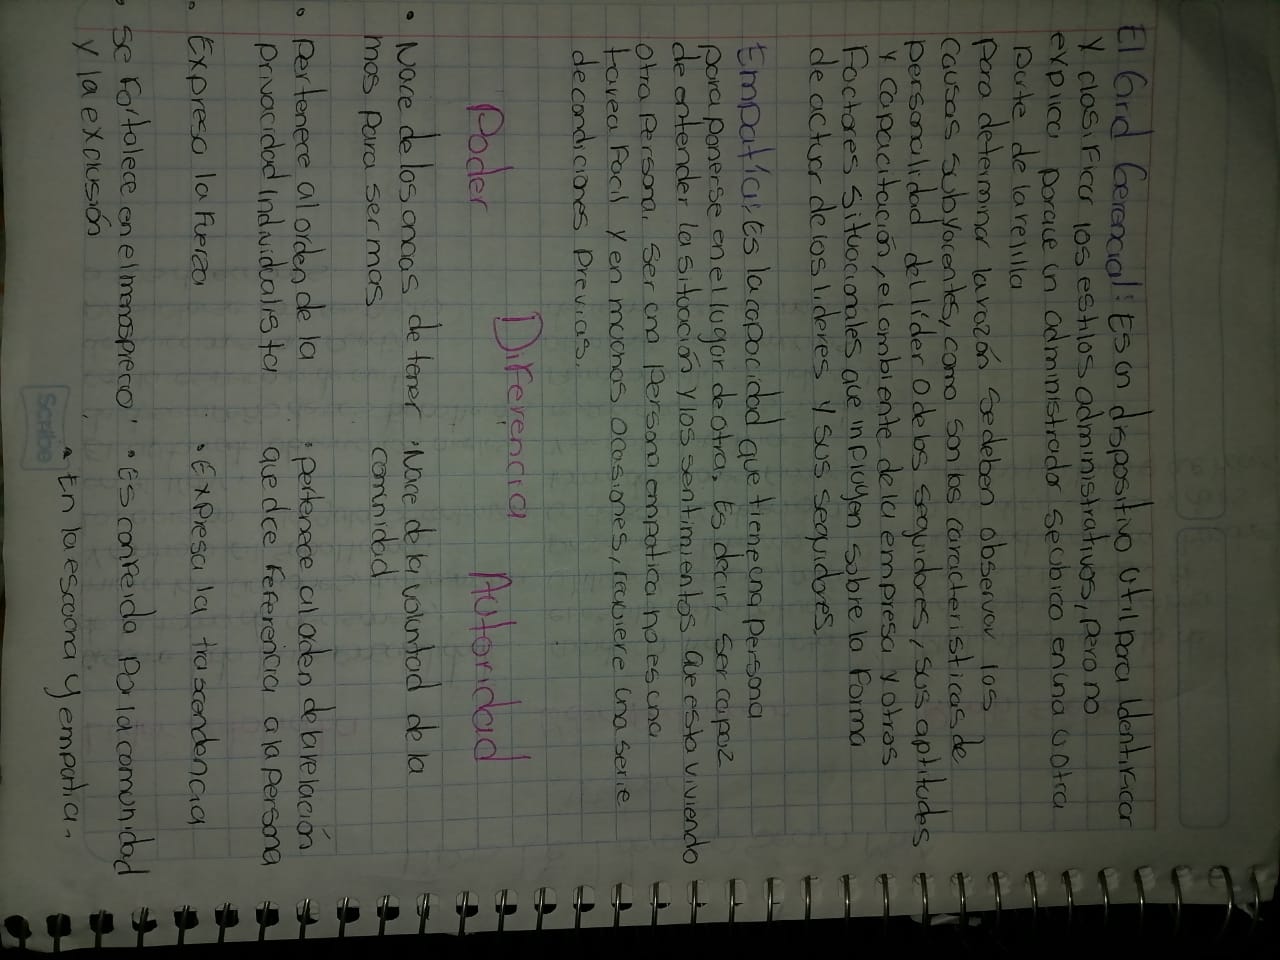 El Grid Gerencial: Es un dispositivo util para Identificar
y clasificar los estilos administrativos, pero no
explica porque un administrador se ubica en una u otra
parte de la rejilla
Para determinar la razón se deben observar las
causas subyacentes, como son las caracteristicas de
personalidad del líder o de los seguidores, sus aptitudes
y capacitación, el ambiente de la empresa y otros
Factores situacionales que influyen sobre la forma
de actuar de los lideres y sus seguidores.
Empatía: Es la capacidad que tiene una persona
para ponerse en el lugar de otra, Es decir, ser capaz
de entender la situación y los sentimientos que esta viviendo
otra persona. Ser una persona empatica no es una
tarea facil y en muchas ocasiones, requiere una serie
de condiciones previas.
Diferencia
Poder
Autoridad
• Nace de las ansias de tener
mas para ser mas
• Nace de la voluntad de la
comunidad
• Pertenece al orden de la
privacidad individualista
• pertenece al orden de la relación
que dce referencia a la persona
• Expresa la fuerza
• Expresa la trascendencia
• Se Fortalece en el menosprecio
y la exclusión
• Es conferida por la comunidad
• En la escucha y empatia.
Scribe